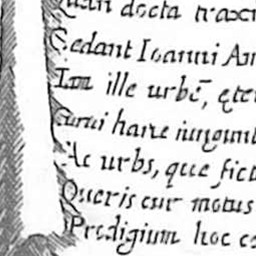 Quam docta traxi
Cedant Ioanni An
Iam ille urbē, ęte
hanc iungunt
Ac urbs, quę fict
Queris cur motus
Prodigium hoc es